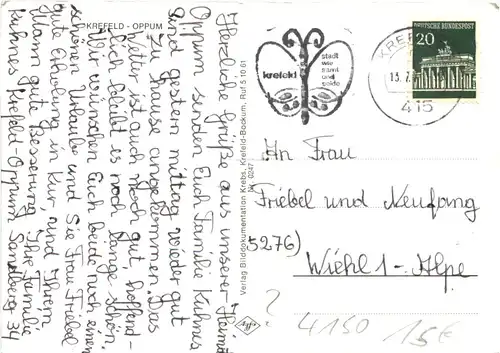 KREFELD - OPPUM
Herzliche Grüße aus unserer Heimat
Oppum senden Euch Familie Kühnes
sind gestern mittag wieder gut
zu Hause angekommen. Das
Wetter ist auch noch gut, hoffend-
lich bleibt es noch lange schön.
Wir wünschen Euch beide noch einen
schönen Urlaub und Sie Frau Friebel
gute Erholung in Kur und Ihrem
Mann gute Besserung Ihre Familie
Kühnes Krefeld-Oppum Sandberg 34
Verlag Bilddokumentation Krebs, Krefeld-Bockum, Ruf 5 16 61
0247
krefeld
stadt
wie
samt
und
seide
KREFELD
13.7.
415
DEUTSCHE BUNDESPOST
20
An Frau
Friebel und Neufang
(5276)
Wiehl 1 - Alpe
Agfa
?
4150 15€